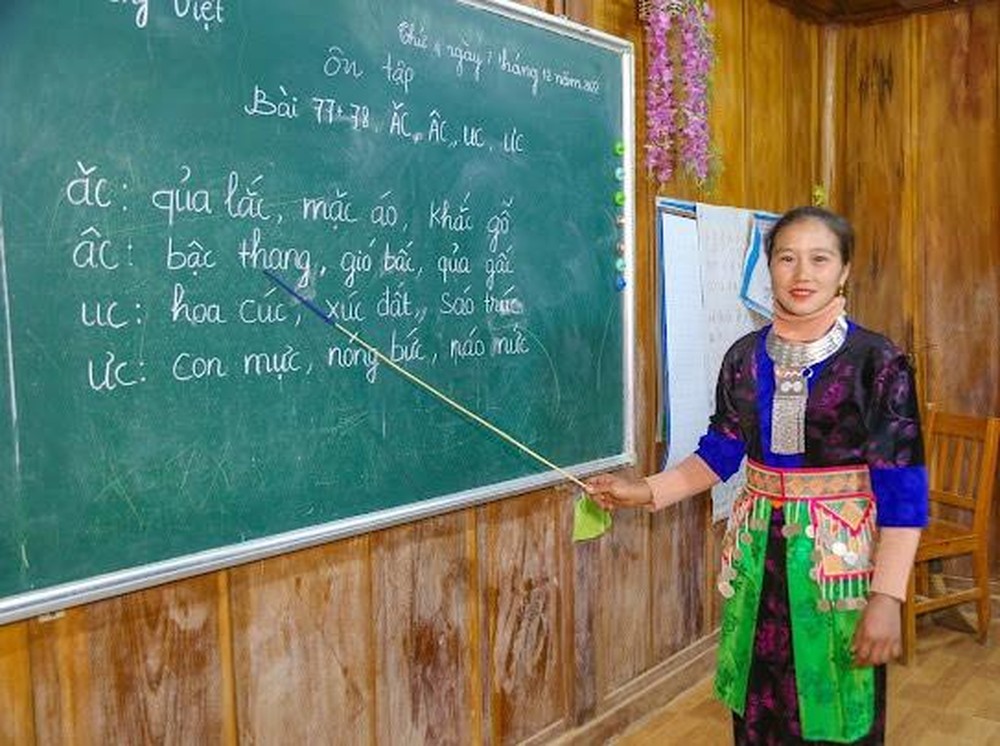 ng Việt
Thứ 4 ngày 7 tháng 12 năm 2022
Ôn tập
Bài 77+78. ĂC, ÂC, UC, ƯC
ăc: qủa lắc, mặc áo, khắc gỗ
âc: bậc thang, gió bấc, qủa gấc
uc: hoa cúc, xúc đất, sáo trúc
ưc: con mực, nóng bức, náo nức